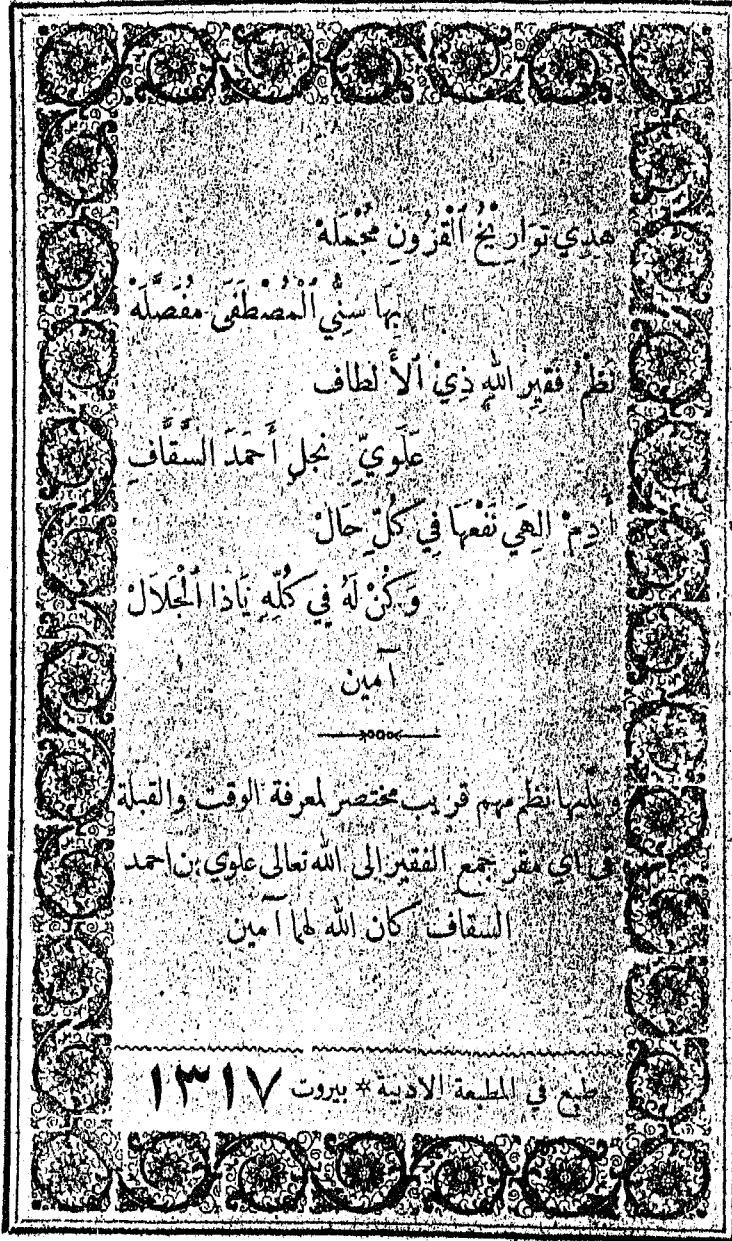 هٰذِي تَوَارِيْخُ ٱلْقُرُونِ مُجْمَلَهْ
بِهَا سِنِيُّ ٱلْمُصْطَفَى مُفَصَّلَهْ
نَظْمُ فَقِيرِ اللهِ ذِيْ ٱلأَلطاف
عَلَوِيِّ نجلِ أَحمَدَ السَّقَّافِ
أَدِمْ الٰهِي نَفْعَهَا فِي كُلِّ حَالْ
وَكُنْ لَهُ فِي كُلِّهِ يَاذَا ٱلْجَلَالْ
آمين
ويليها نظم مهم قريب مختصر لمعرفة الوقت والقبلة
في اي مقر جمع الفقير الى الله تعالى علوي بن احمد
السقاف كان الله لهما آمين
طبع في المطبعة الادبية * بيروت ١٣١٧